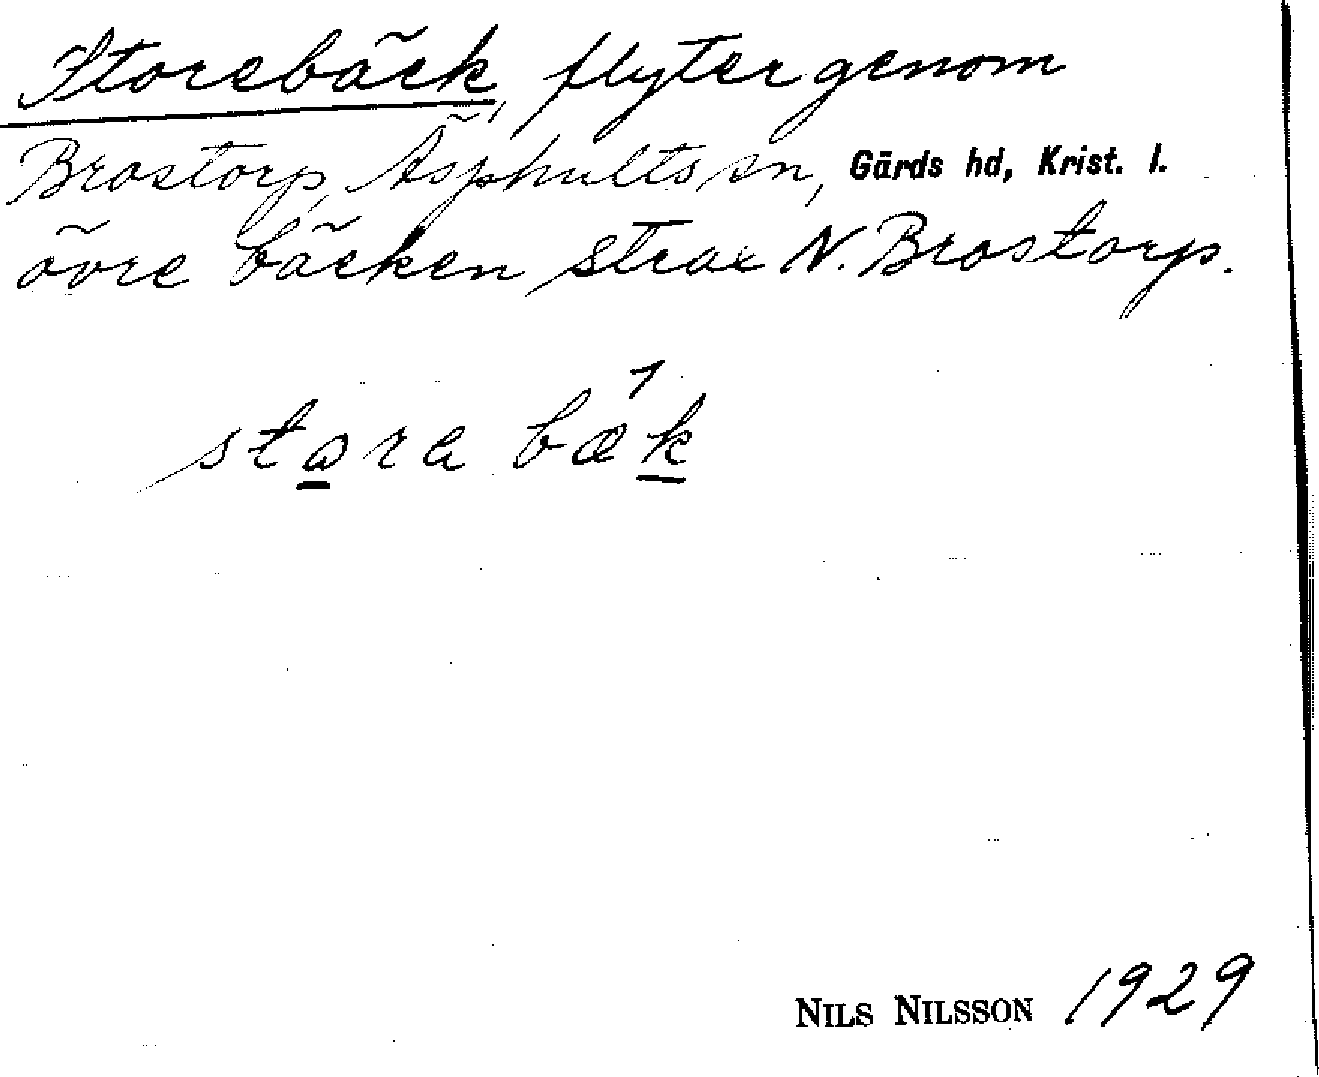 Storebäck, flyter genom
Brostorp, Äsphults sn, Gärds hd, Krist. l.
övre bäcken strax N. Brostorp.
stora bæk
NILS NILSSON 1929